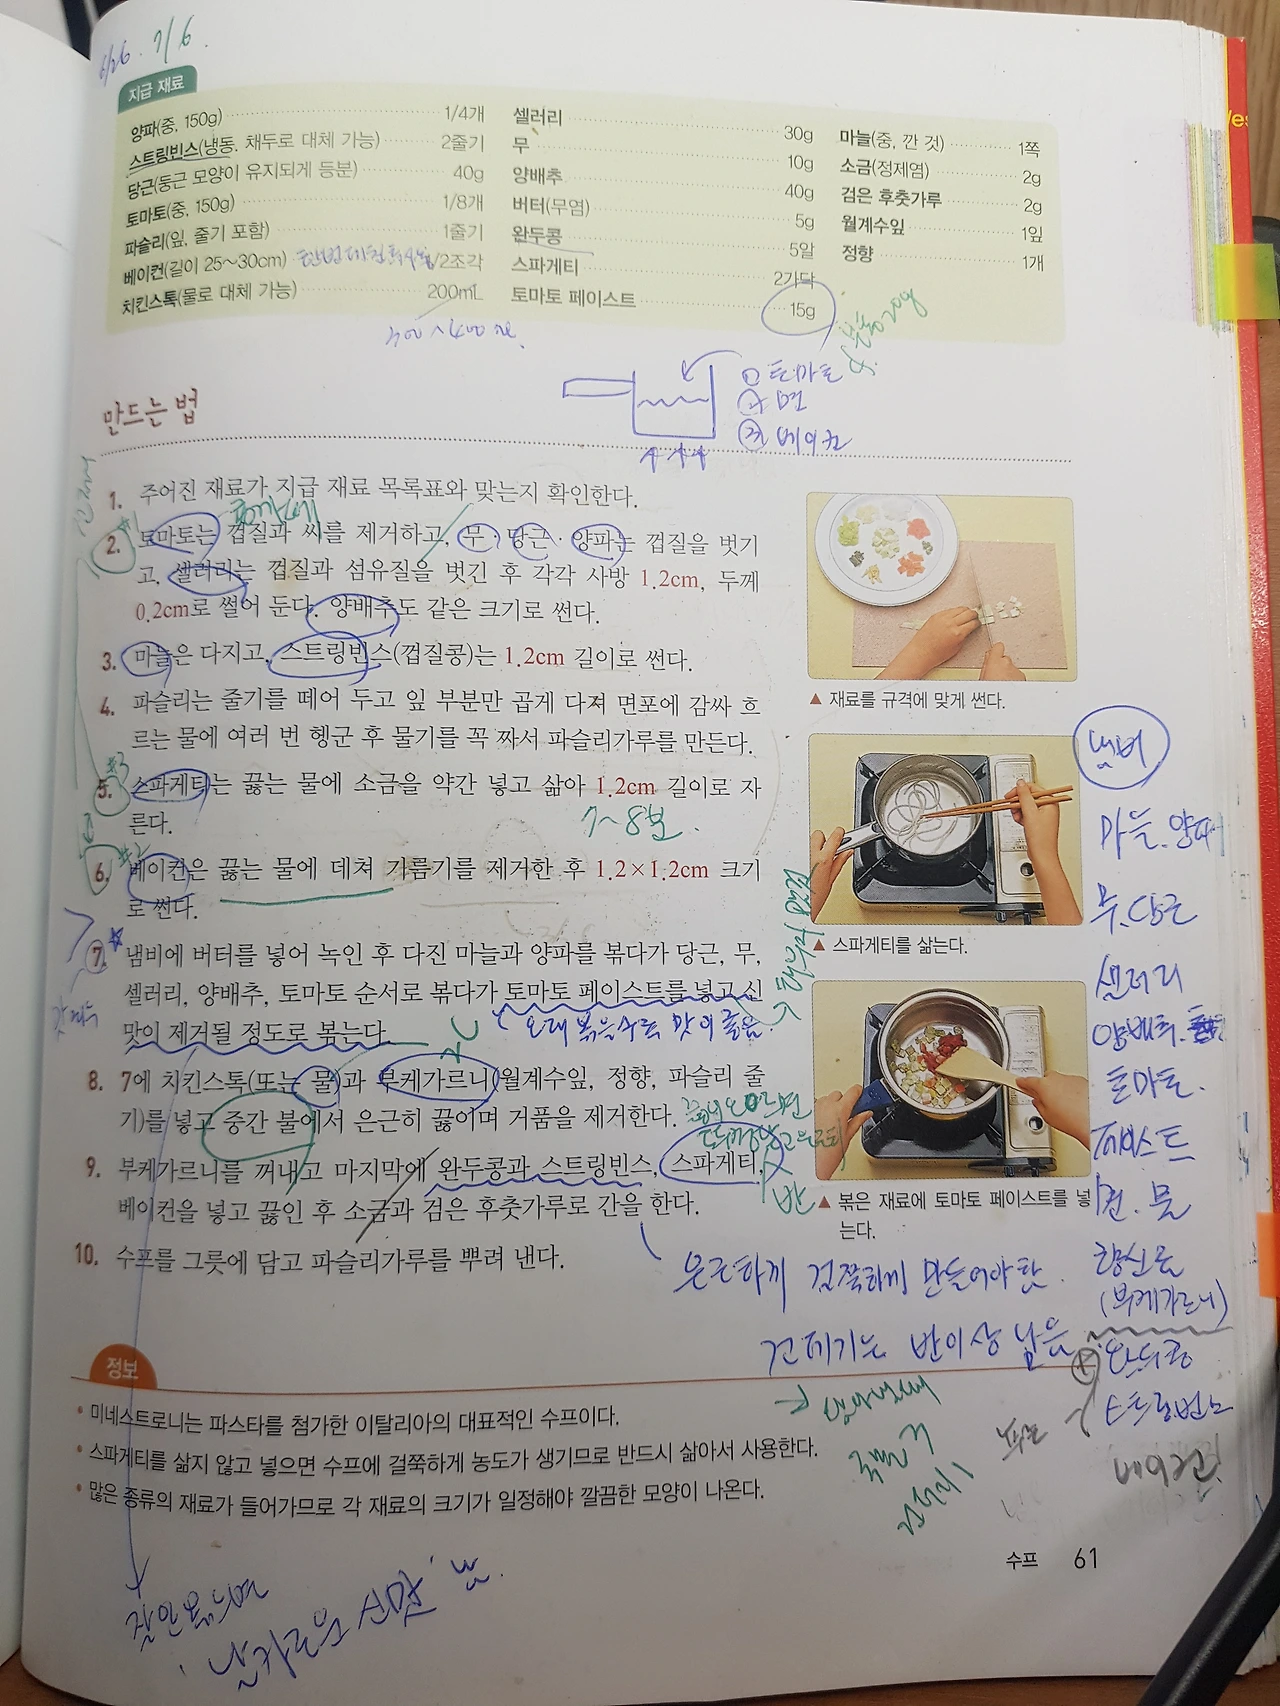 6/26. 7/6.
지급 재료
양파(중, 150g) 1/4개
스트링빈스(냉동, 채두로 대체 가능) 2줄기
당근(둥근 모양이 유지되게 등분) 40g
토마토(중, 150g) 1/8개
파슬리(잎, 줄기 포함) 1줄기
베이컨(길이 25~30cm) /2조각
치킨스톡(물로 대체 가능) 200mL
셀러리 30g
무 10g
양배추 40g
버터(무염) 5g
완두콩 5알
스파게티 2가닥
토마토 페이스트 15g
마늘(중, 깐 것) 1쪽
소금(정제염) 2g
검은 후춧가루 2g
월계수잎 1잎
정향 1개
300~400
① 토마토
② 면
③ 베이컨
만드는 법
1. 주어진 재료가 지급 재료 목록표와 맞는지 확인한다.
#1
2. 토마토는 껍질과 씨를 제거하고, 무·당근·양파는 껍질을 벗기
고, 셀러리는 껍질과 섬유질을 벗긴 후 각각 사방 1.2cm, 두께
0.2cm로 썰어 둔다. 양배추도 같은 크기로 썬다.
3. 마늘은 다지고, 스트링빈스(껍질콩)는 1.2cm 길이로 썬다.
4. 파슬리는 줄기를 떼어 두고 잎 부분만 곱게 다져 면포에 감싸 흐
르는 물에 여러 번 헹군 후 물기를 꼭 짜서 파슬리가루를 만든다.
#3
5. 스파게티는 끓는 물에 소금을 약간 넣고 삶아 1.2cm 길이로 자
른다.
7~8분
#2
6. 베이컨은 끓는 물에 데쳐 기름기를 제거한 후 1.2×1.2cm 크기
로 썬다.
7. 냄비에 버터를 넣어 녹인 후 다진 마늘과 양파를 볶다가 당근, 무,
셀러리, 양배추, 토마토 순서로 볶다가 토마토 페이스트를 넣고 신
맛이 제거될 정도로 볶는다.
오래 볶을수록 맛이 좋음.
8. 7에 치킨스톡(또는 물)과 부케가르니(월계수잎, 정향, 파슬리 줄
기)를 넣고 중간 불에서 은근히 끓이며 거품을 제거한다.
9. 부케가르니를 꺼내고 마지막에 완두콩과 스트링빈스, 스파게티,
베이컨을 넣고 끓인 후 소금과 검은 후춧가루로 간을 한다.
10. 수프를 그릇에 담고 파슬리가루를 뿌려 낸다.
▲ 재료를 규격에 맞게 썬다.
▲ 스파게티를 삶는다.
▲ 볶은 재료에 토마토 페이스트를 넣
는다.
냄비
마늘.양파
무.당근
셀러리
양배추.
토마토.
페이스트
물
향신료
(부케가르니)
완두콩
스트링빈스
베이컨
은근하게 걸쭉하게 만들어야 함.
건데기는 반이상 남음
정보
• 미네스트로니는 파스타를 첨가한 이탈리아의 대표적인 수프이다.
• 스파게티를 삶지 않고 넣으면 수프에 걸쭉하게 농도가 생기므로 반드시 삶아서 사용한다.
• 많은 종류의 재료가 들어가므로 각 재료의 크기가 일정해야 깔끔한 모양이 나온다.
잘 안볶으면
날카로운 신맛 남.
수프 61